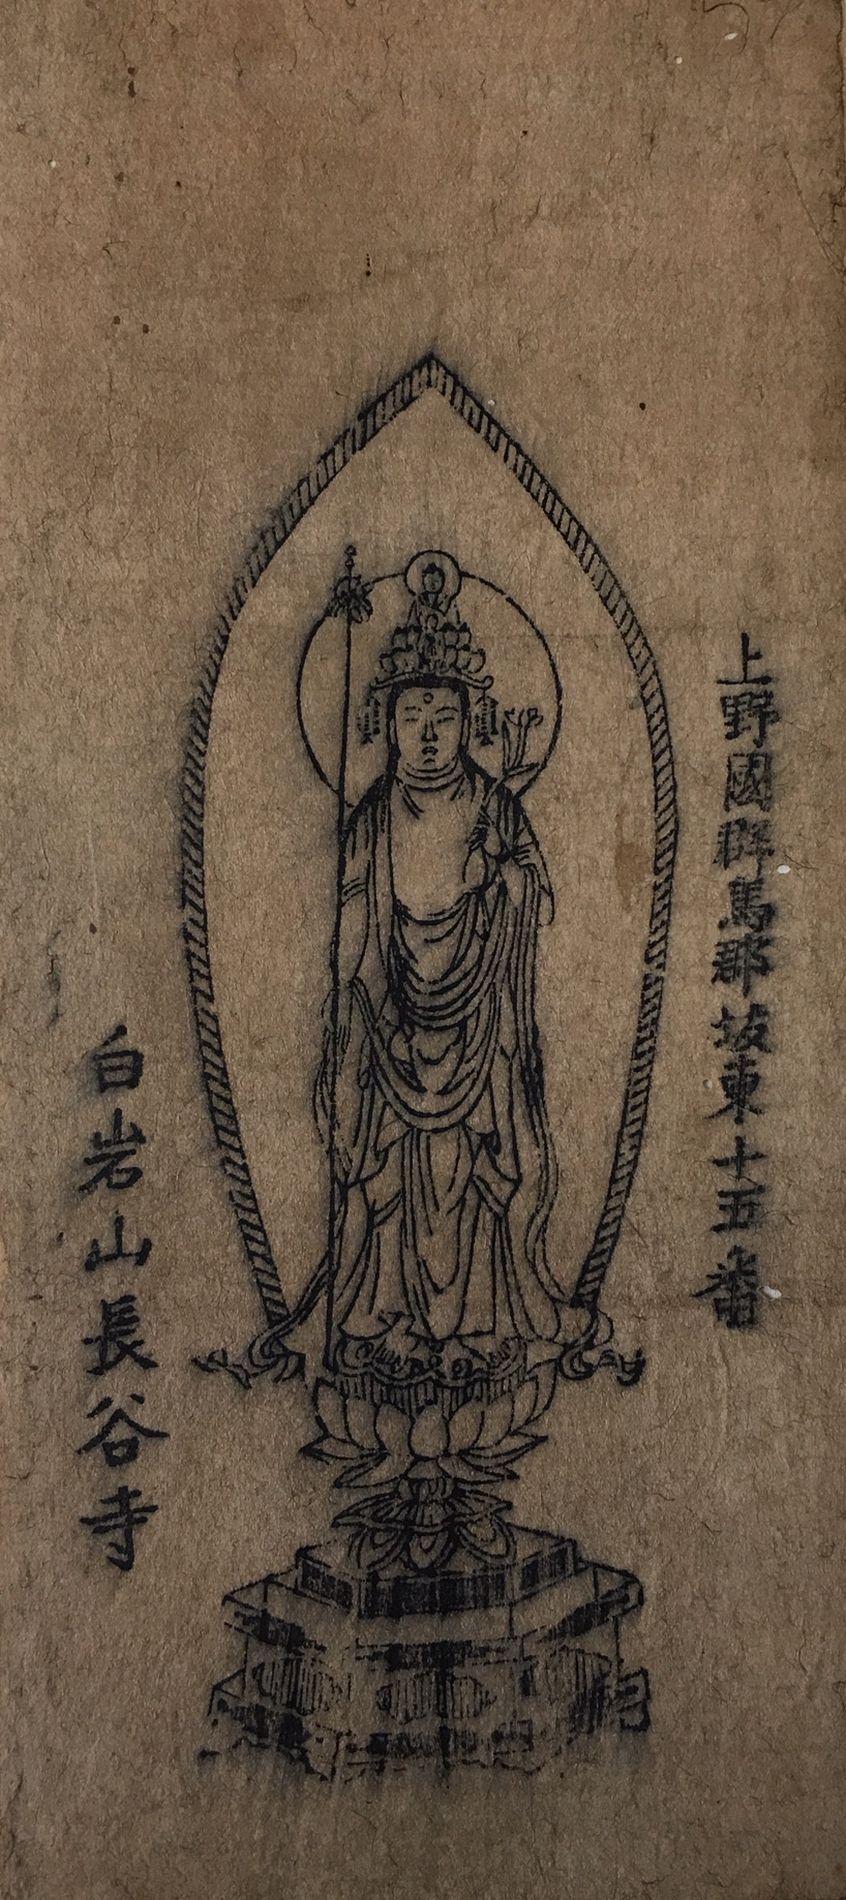 上野國群馬郡坂東十五番
白岩山長谷寺